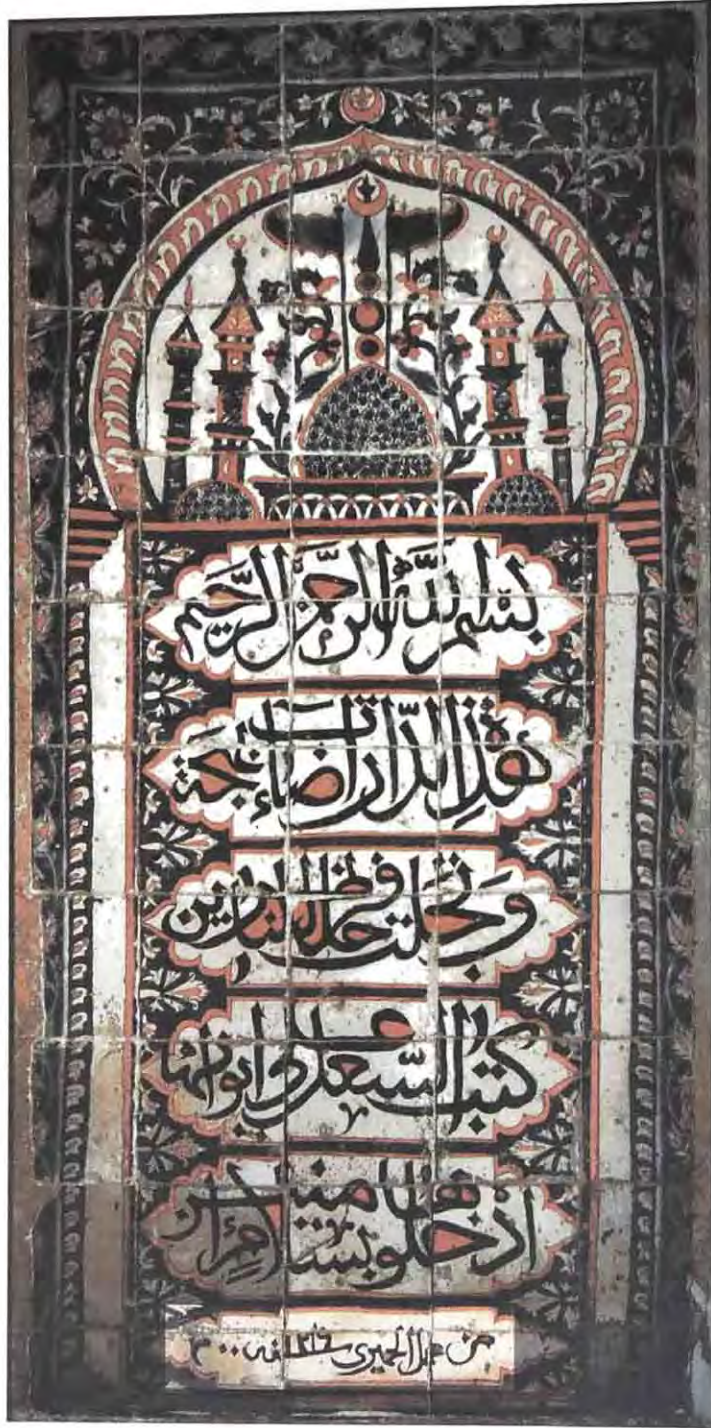 بسم الله الرحمن الرحيم
هذه الدار اضاءت بهجة
وتجلت للناظرين
كتب السعد على ابوابها
ادخلوها بسلام آمنين
من عمل الحميري